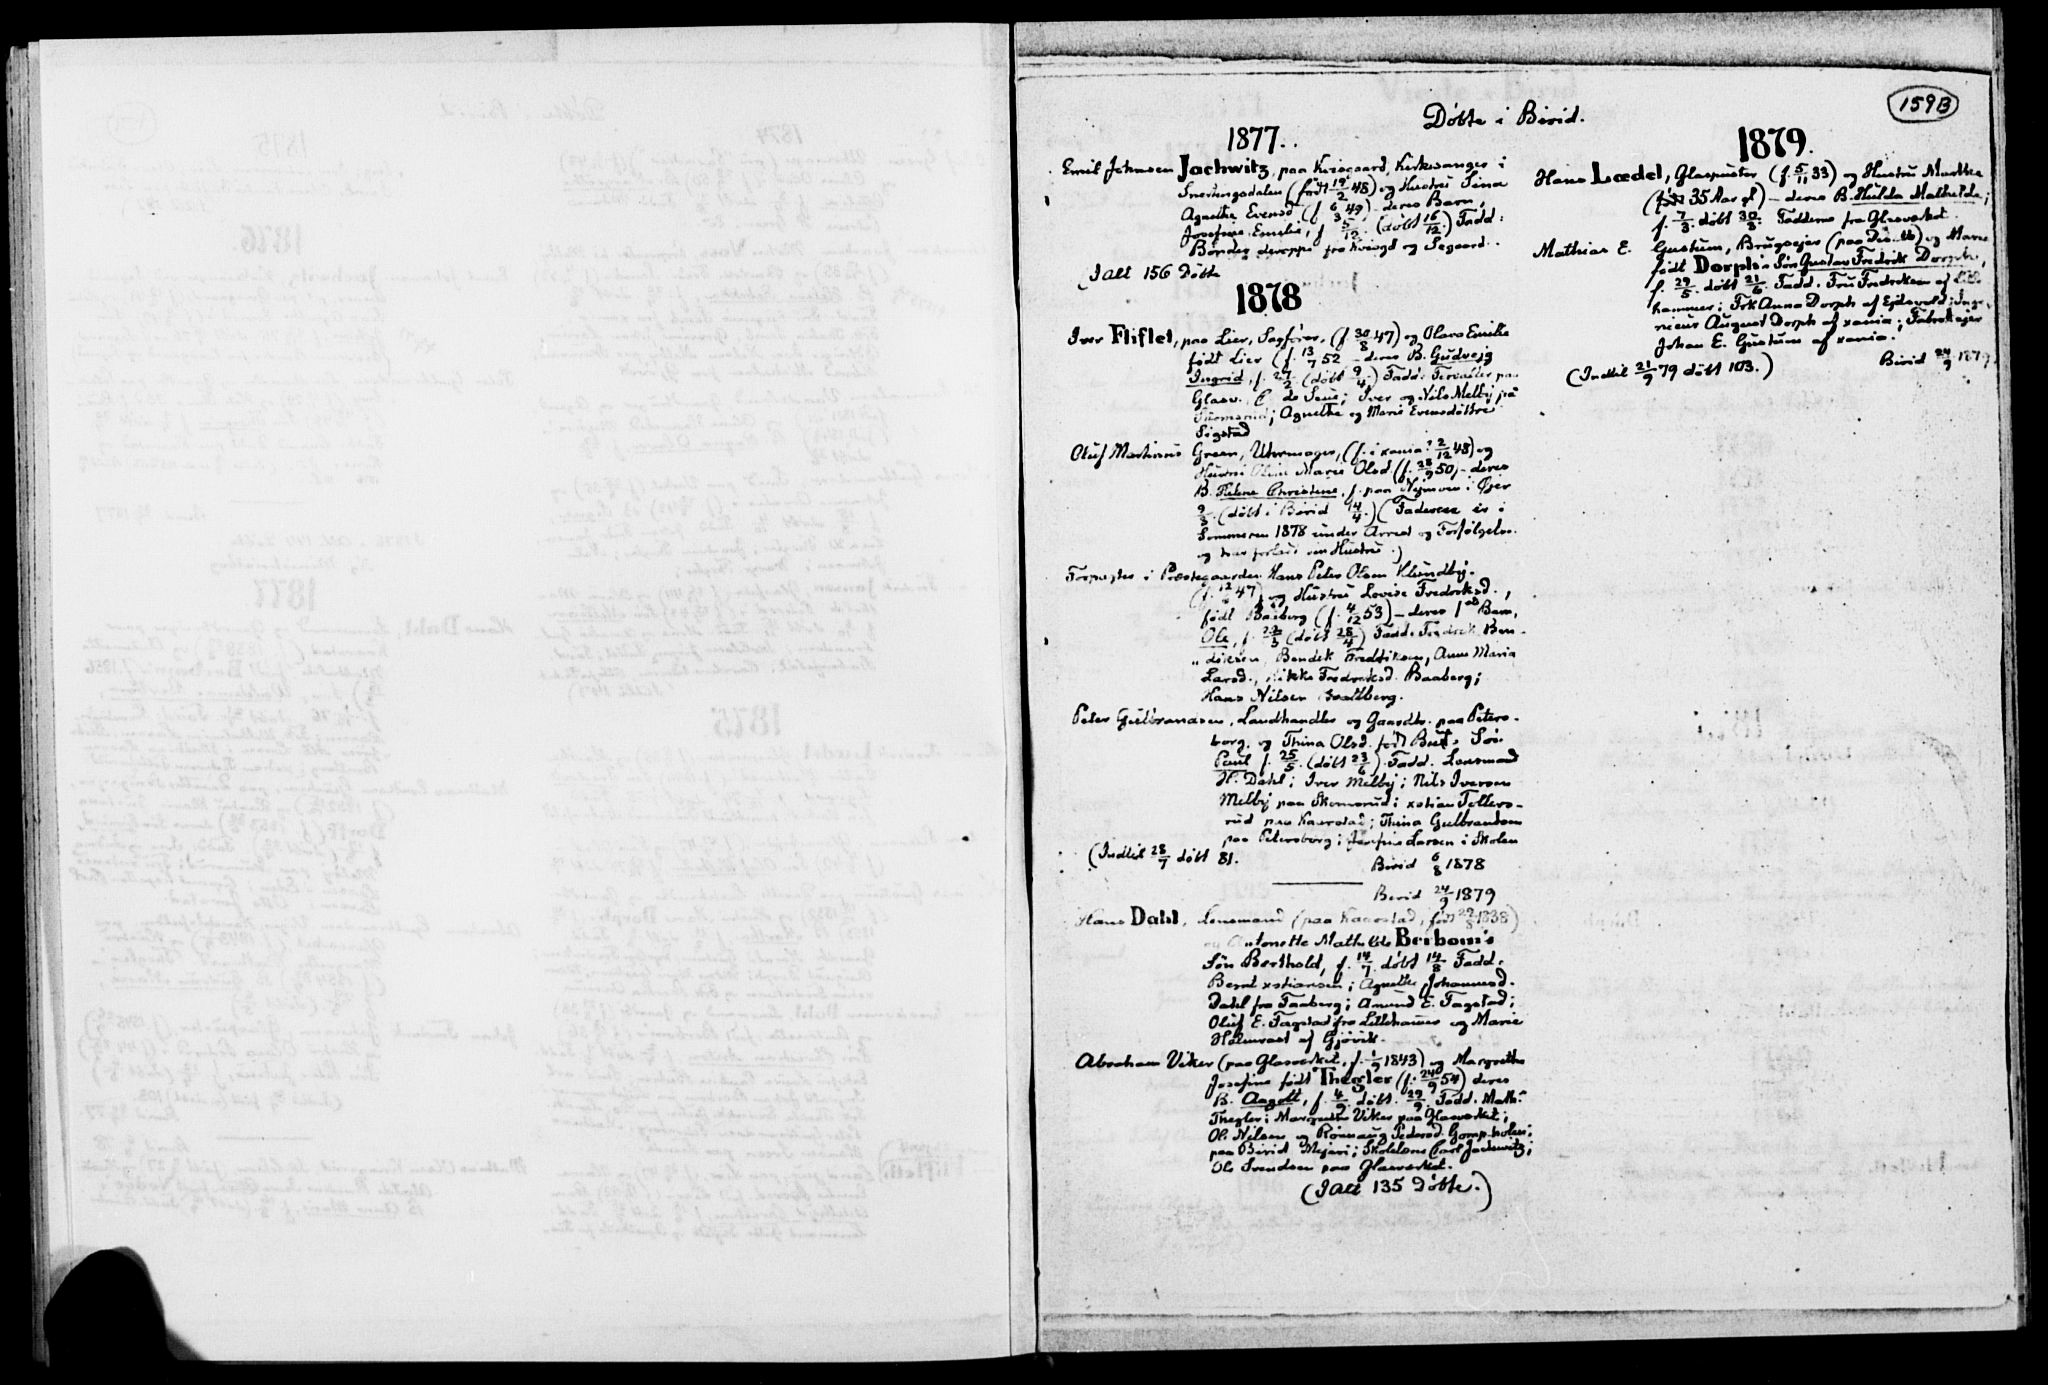 159B
Døbte i Birid.
1877.
Emil Johnsen Jochwitz, paa Kvisgaard, Kirkesanger i
Snertingsdalen (født 19/2 48) og Hustru Sina
Agnethe Evensd. (f. 6/3 49) - deres Barn,
Josefine Emelie, f. 5/12. (døbt 16/12.) Fadd:
Bønder deroppe fra og Segaard.
(I alt 156 Døbte
1878
Iver Fliflet, paa Lier, Sagfører, (f. 30/8 47) og Olava Emilie
født Lier (f. 13/7 52 - deres B. Gudveig
Ingrid, f. 27/2. (døbt 9/4.) Fadd: Forvalter paa
Glasv. Iver og Nils Melby på
Agnethe og Marie Evensdøttre
Sigstad
Oluf Martinius Green, Uhrmager, (f. i xania 2/12 48) og
Hustru Oline Marie Olsd. (f. 28/9 50) - deres
B. Helene Christene, f. paa i Øier
9/3. (døbt i Birid 14/4.) (Faderen er i
Sommeren 1878 under Arrest og Forfølgelse
og har forladt sin Hustru.)
Forpagter i Præstegaarden Hans Peter Olsen Klundby.
47) og Hustru Lovise Fredriksd.,
født Baaberg (f. 4/12 53) - deres 1ste Barn,
Ole, f. 23/3 (døbt 28/4) Fadd. Fredrik Ben-
" diksen, Bendik Fredriksen, Anne Maria
Larsd., Rikke Fredriksd. Baaberg;
Hans Nilsen
Peter Gulbrandsen, Landhandler og Gaardbr. paa Peters-
borg, og Thina Olsd. født Søn
Paul f. 25/5. (døbt 23/6) Fadd. Lensmand
H. Dahl; Iver Melby; Nils Iversen
Melby paa xstian Tollers-
rud paa Kaarstad; Thina Gulbrandsen
paa Petersborg; Josefine Larsen i Skolen
(Indtil 28/7 døbt 81. Birid 6/8 1878
Birid 24/9 1879
Hans Dahl, Lensmand (paa Kaarstad, født 29/5 1838)
og Antonette Mathilde Berbom's
Søn Berthold, f. 14/7 døbt 14/8 Fadd.
Bernt xstiansen; Agnethe Johannesd.
Dahl fra Faaberg; Amund E. Fagstad;
Oluf E. Fagstad fra Lillehammer og Marie
Holmvast af Gjøvik.
Abraham Viker (paa Glasverket, f. 1/9 1843) og Margrethe
Josefine født Thegler (f. 24/9 54) deres
B. Aagott, f. 4/9 døbt. 29/9 Fadd. Math.
Thegler; Margrethe Viker paa Glasverket;
Ol. Nilsen og Rønnaug Pedersd.
paa Birid Mejeri; Skolelærer Carl Jochwitz;
Ole Svendsen paa Glasverket.
(I alt 135 Døbte.)
1879.
Hans Lædel, Glaspuster (f. 5/11 33) og Hustru Marthea
(født 35 Aar gl.) - deres B. Hulda Mathilde;
f. 7/3. døbt 30/3. Fadderne fra Glasverket.
Mathias E. Gustum, Brugsejer og Marie
født Dorph's Søn Gustav Fredrik Dorph,
f. 29/5. døbt 21/6. Fadd. Fru Fredriksen af Lille-
hammer; Frk Anna Dorph af Ejdsvold; Inge-
nieur August Dorph af xania; Fabrikejer
Johan E. Gustum af xania.
(Indtil 21/9 79 døbt 103.) Birid 24/9 1879.